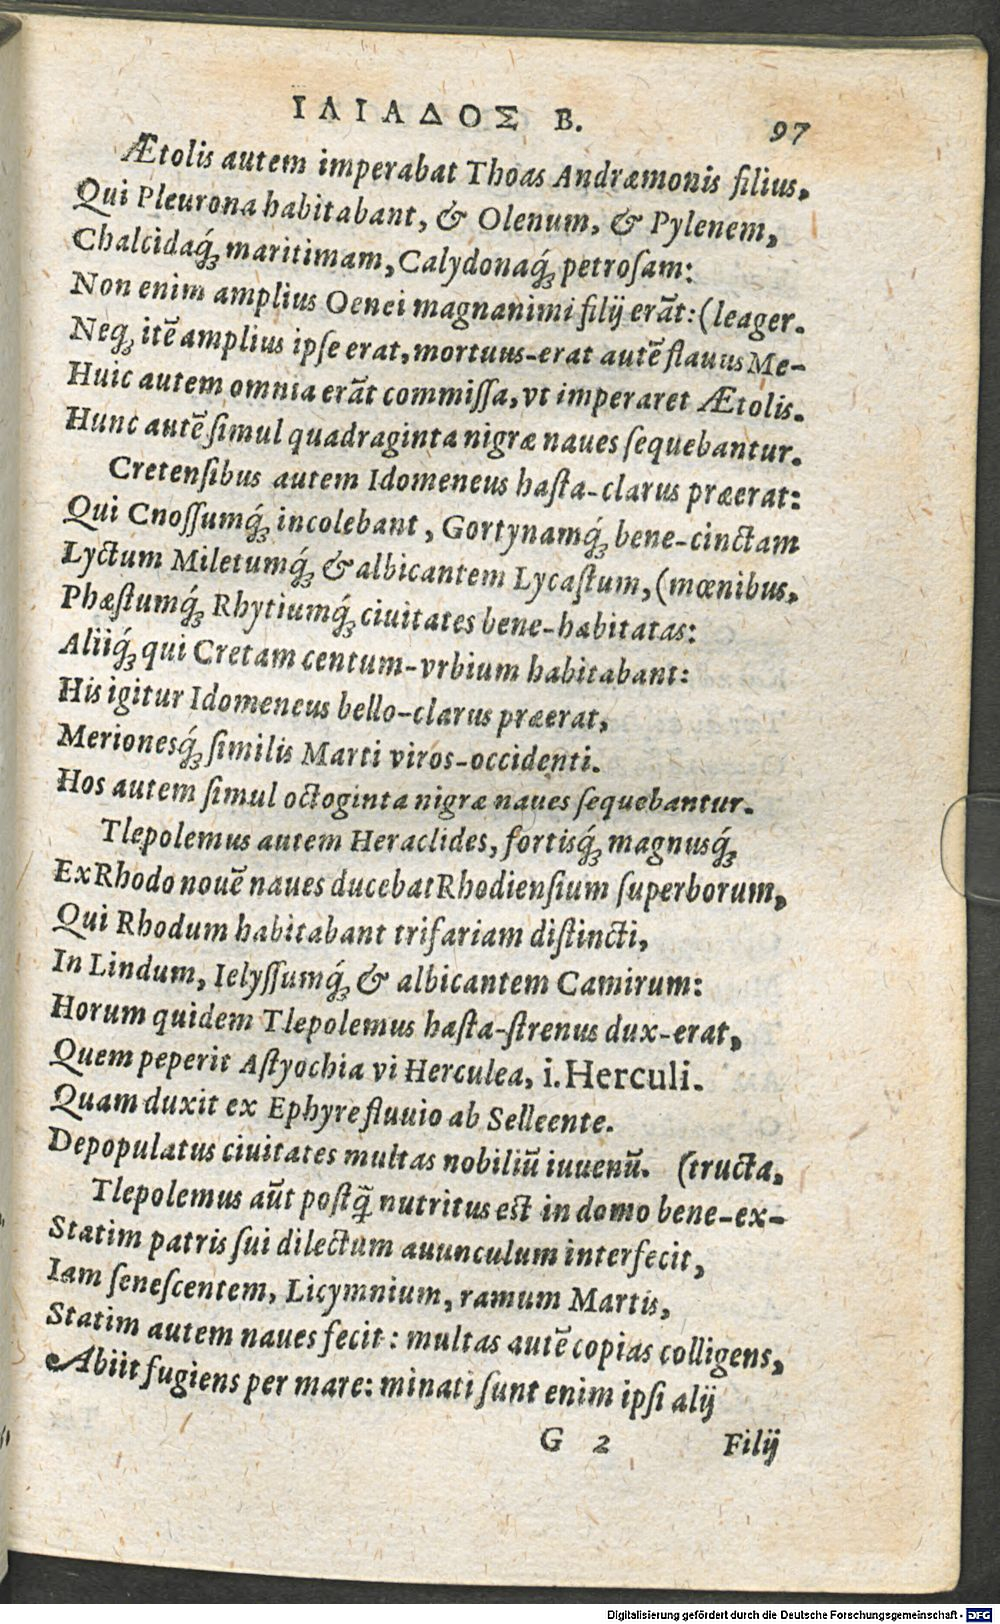 ΙΛΙΑΔΟΣ Β. 97
Ætolis autem imperabat Thoas Andræmonis filius,
Qui Pleurona habitabant, & Olenum, & Pylenem,
Chalcidaq́ꝫ maritimam, Calydonaq́ꝫ petroſam:
Non enim amplius Oenei magnanimi filij erãt: (leager.
Neqꝫ itẽ amplius ipſe erat, mortuus-erat autẽ flauus Me-
Huic autem omnia erãt commiſſa, vt imperaret Ætolis.
Hunc autẽ ſimul quadraginta nigræ naues ſequebantur.
Cretenſibus autem Idomeneus haſta-clarus præerat:
Qui Cnoſſumq́ꝫ incolebant, Gortynamq́ꝫ bene-cinctam
Lyctum Miletumq́ꝫ & albicantem Lycaſtum, (mœnibus,
Phæſtumq́ꝫ Rhytiumq́ꝫ ciuitates bene-habitatas:
Aliiq́ꝫ qui Cretam centum-vrbium habitabant:
His igitur Idomeneus bello-clarus præerat,
Merionesq́ꝫ ſimilis Marti viros-occidenti.
Hos autem ſimul octoginta nigræ naues ſequebantur.
Tlepolemus autem Heraclides, fortisq́ꝫ magnusq́ꝫ
Ex Rhodo nouẽ naues ducebat Rhodienſium ſuperborum,
Qui Rhodum habitabant trifariam diſtincti,
In Lindum, Ielyſſumq́ꝫ & albicantem Camirum:
Horum quidem Tlepolemus haſta-ſtrenus dux-erat,
Quem peperit Aſtyochia vi Herculea, i. Herculi.
Quam duxit ex Ephyre fluuio ab Selleente.
Depopulatus ciuitates multas nobiliũ iuuenũ. (tructa,
Tlepolemus aũt poſtq̃ nutritus est in domo bene-ex-
Statim patris ſui dilectum auunculum interfecit,
Iam ſeneſcentem, Licymnium, ramum Martis,
Statim autem naues fecit: multas autẽ copias colligens,
Abiit fugiens per mare: minati ſunt enim ipſi alij
G 2 Filij
Digitalisierung gefördert durch die Deutsche Forschungsgemeinschaft - DFG